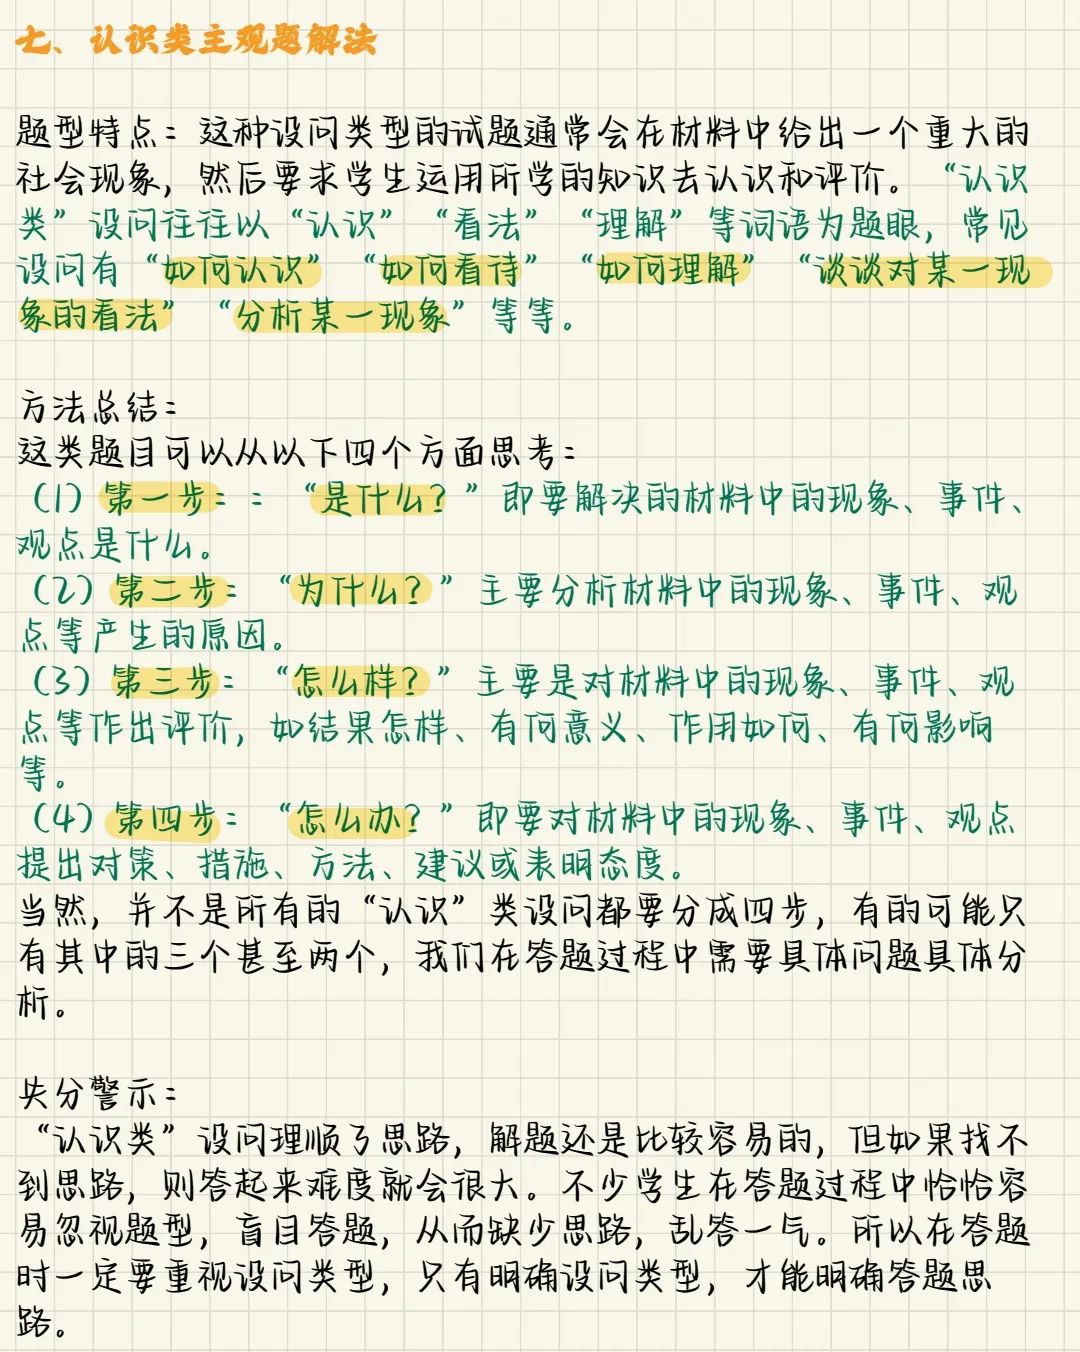 七、认识类主观题解法
题型特点：这种设问类型的试题通常会在材料中给出一个重大的
社会现象，然后要求学生运用所学的知识去认识和评价。“认识
类”设问往往以“认识”“看法”“理解”等词语为题眼，常见
设问有“如何认识”“如何看待”“如何理解”“谈谈对某一现
象的看法”“分析某一现象”等等。
方法总结：
这类题目可以从以下四个方面思考：
（1）第一步：：“是什么？”即要解决的材料中的现象、事件、
观点是什么。
（2）第二步：“为什么？”主要分析材料中的现象、事件、观
点等产生的原因。
（3）第三步：“怎么样？”主要是对材料中的现象、事件、观
点等作出评价，如结果怎样、有何意义、作用如何、有何影响
等。
（4）第四步：“怎么办？”即要对材料中的现象、事件、观点
提出对策、措施、方法、建议或表明态度。
当然，并不是所有的“认识”类设问都要分成四步，有的可能只
有其中的三个甚至两个，我们在答题过程中需要具体问题具体分
析。
失分警示：
“认识类”设问理顺了思路，解题还是比较容易的，但如果找不
到思路，则答起来难度就会很大。不少学生在答题过程中恰恰容
易忽视题型，盲目答题，从而缺少思路，乱答一气。所以在答题
时一定要重视设问类型，只有明确设问类型，才能明确答题思
路。